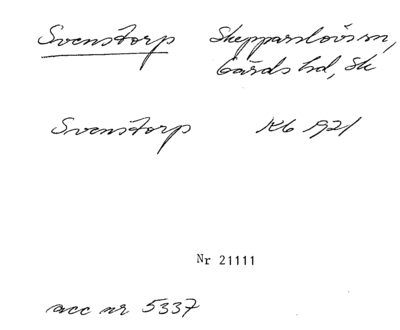 Svenstorp Skepparslövs sn,
Gärds hd, Sk
Svenstorp Kb 1921
Nr 21111
acc nr 5337